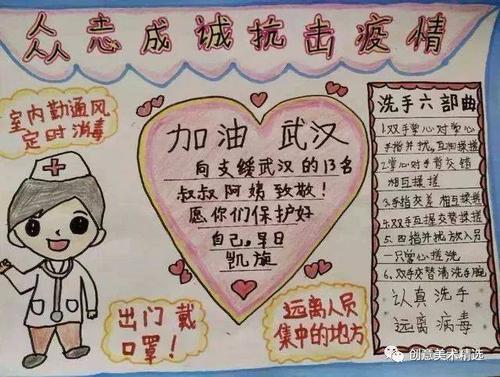 众志成诚抗击疫情
室内勤通风
定时消毒
加油 武汉
向支缓武汉的13名
叔叔阿姨致敬!
愿你们保护好
自己,早日
凯旋
出门 戴
口罩!
远离人员
集中的地方
洗手六部曲
1.双手掌心对掌心
手指并拢,互相揉搓
2.掌心对手背交错
相互揉搓
3.手指交差 相互揉搓
4.双手互握交替揉搓
5.四指并拢放入另
一只掌心搓洗
6.双手交替清洗手腕
认真洗手
远离病毒
创意美术精选